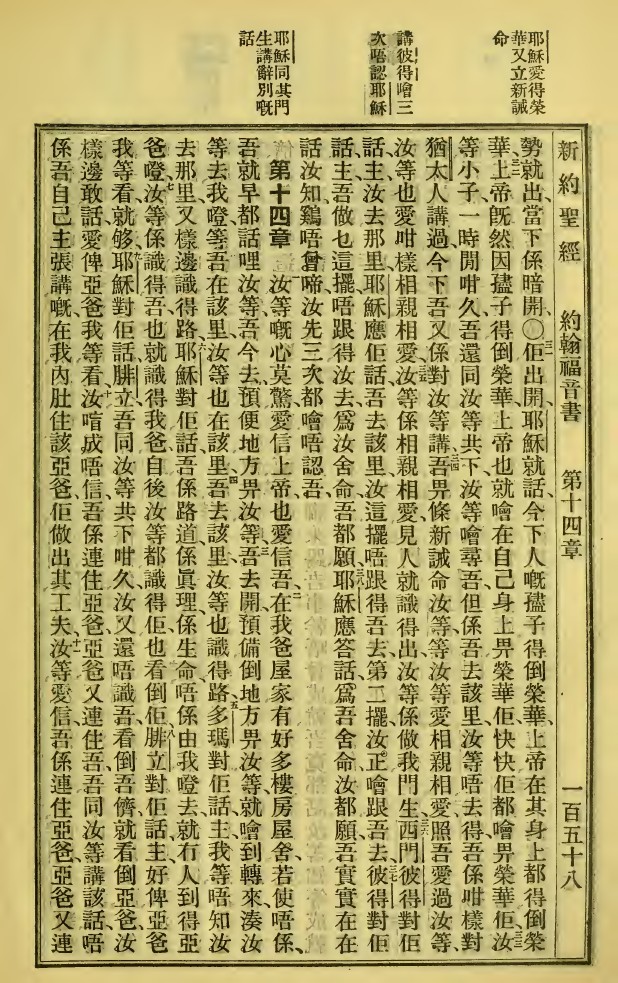 耶穌愛得榮
華又立新誡
命
講彼得噲三
次唔認耶穌
耶穌同其門
生講辭別嘅
話
新約聖經 約翰福音書 第十四章 一百五十八
勢、就出、當下係暗開、〇三一佢出開、耶穌就話、今下人嘅孻子得倒榮華、上帝在其身上都得倒榮
華、三二上帝旣然因孻子得倒榮華、上帝也就噲在自己身上畀榮華佢、快快佢都噲畀榮華佢、三三汝
等小子、一時閒咁久、吾還同汝等共下、汝等噲尋吾、但係吾去該里、汝等唔去得、吾係咁樣對
猶太人講過、今下吾又係對汝等講、三四吾畀條新誡命汝等、等汝等愛相親相愛、照吾愛過汝等、
汝等也愛咁樣相親相愛、三五汝等係相親相愛、見人就識得出汝等係做我門生、三六西門彼得對佢
話、主、汝去那里、耶穌應佢話、吾去該里、汝這擺唔跟得吾去、第二擺汝正噲跟吾去、三七彼得對佢
話、主、吾做乜這擺唔跟得汝去、爲汝舍命吾都願、三八耶穌應答話、爲吾舍命汝都願、吾實實在在
話汝知、鷄唔曾啼、汝先三次都噲唔認吾、
第十四章 汝等嘅心莫驚、愛信上帝、也愛信吾、二在我爸屋家、有好多樓房屋舍、若使唔係、
吾就早都話哩汝等、吾今去預便地方畀汝等、三吾去開、預備倒地方畀汝等、就噲到轉來湊汝
等去我嶝、等吾在該里、汝等也在該里、四吾去該里、汝等也識得路、五多瑪對佢話、主、我等唔知汝
去那里、又樣邊識得路、六耶穌對佢話、吾係路道、係眞理、係生命、唔係由我嶝去、就冇人到得亞
爸嶝、七汝等係識得吾、也就識得我爸、自後汝等都識得佢、也看倒佢、八腓立對佢話、主、好俾亞爸
我等看、就够、九耶穌對佢話、腓立、吾同汝等共下咁久、汝又還唔識吾、看倒吾儕、就看倒亞爸、汝
樣邊敢話、愛俾亞爸我等看、十汝喑成唔信吾係連住亞爸、亞爸又連住吾、吾同汝等講該話、唔
係吾自己主張講嘅、在我內肚住該亞爸、佢做出其工夫、十一汝等愛信吾係連住亞爸、亞爸又連